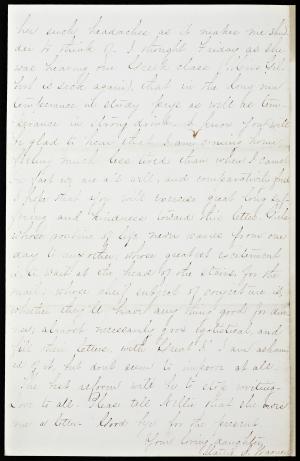 her such headaches as it makes me shud-
der to think of. I thought Friday as she
was hearing our Greek class (Miss Gil-
bert is sick again), that in the long run
temperance in study pays as well as tem-
perance in strong drink. I know you will
be glad to hear that I am coming home
feeling much less tired than when I came
In fact we are all well, and comparatively fresh
I hope that you will exercise great long suf-
fering and kindness toward this letter. Girls
whose routine of life never varies from one
day to another, whose greatest excitement
is to wait at the head of the stairs for the
mail, whose only subject of conjecture is
whether they'll have any thing good for din-
ner, almost necessarily grow egotistical, and
fill their letters with Great I. I am asham-
ed of it, but don't seem to improve at all.
The next reform will be to stop writing.
Love to all. Please tell Nellie that she owes
me a letter. Good bye for the present.
Your loving daughter,